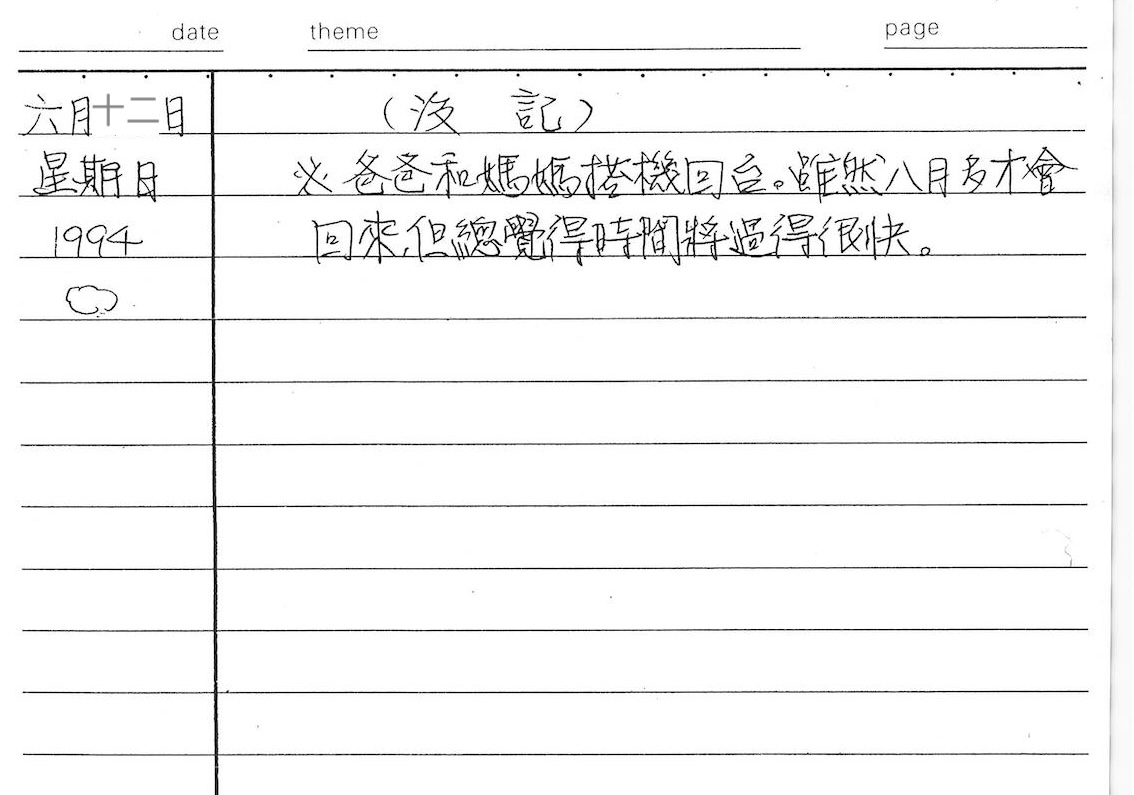 date theme page
六月十二日 （沒 記）
星期日 ※ 爸爸和媽媽搭機回台。雖然八月多才會
1994 回來,但總覺得時間將過得很快。